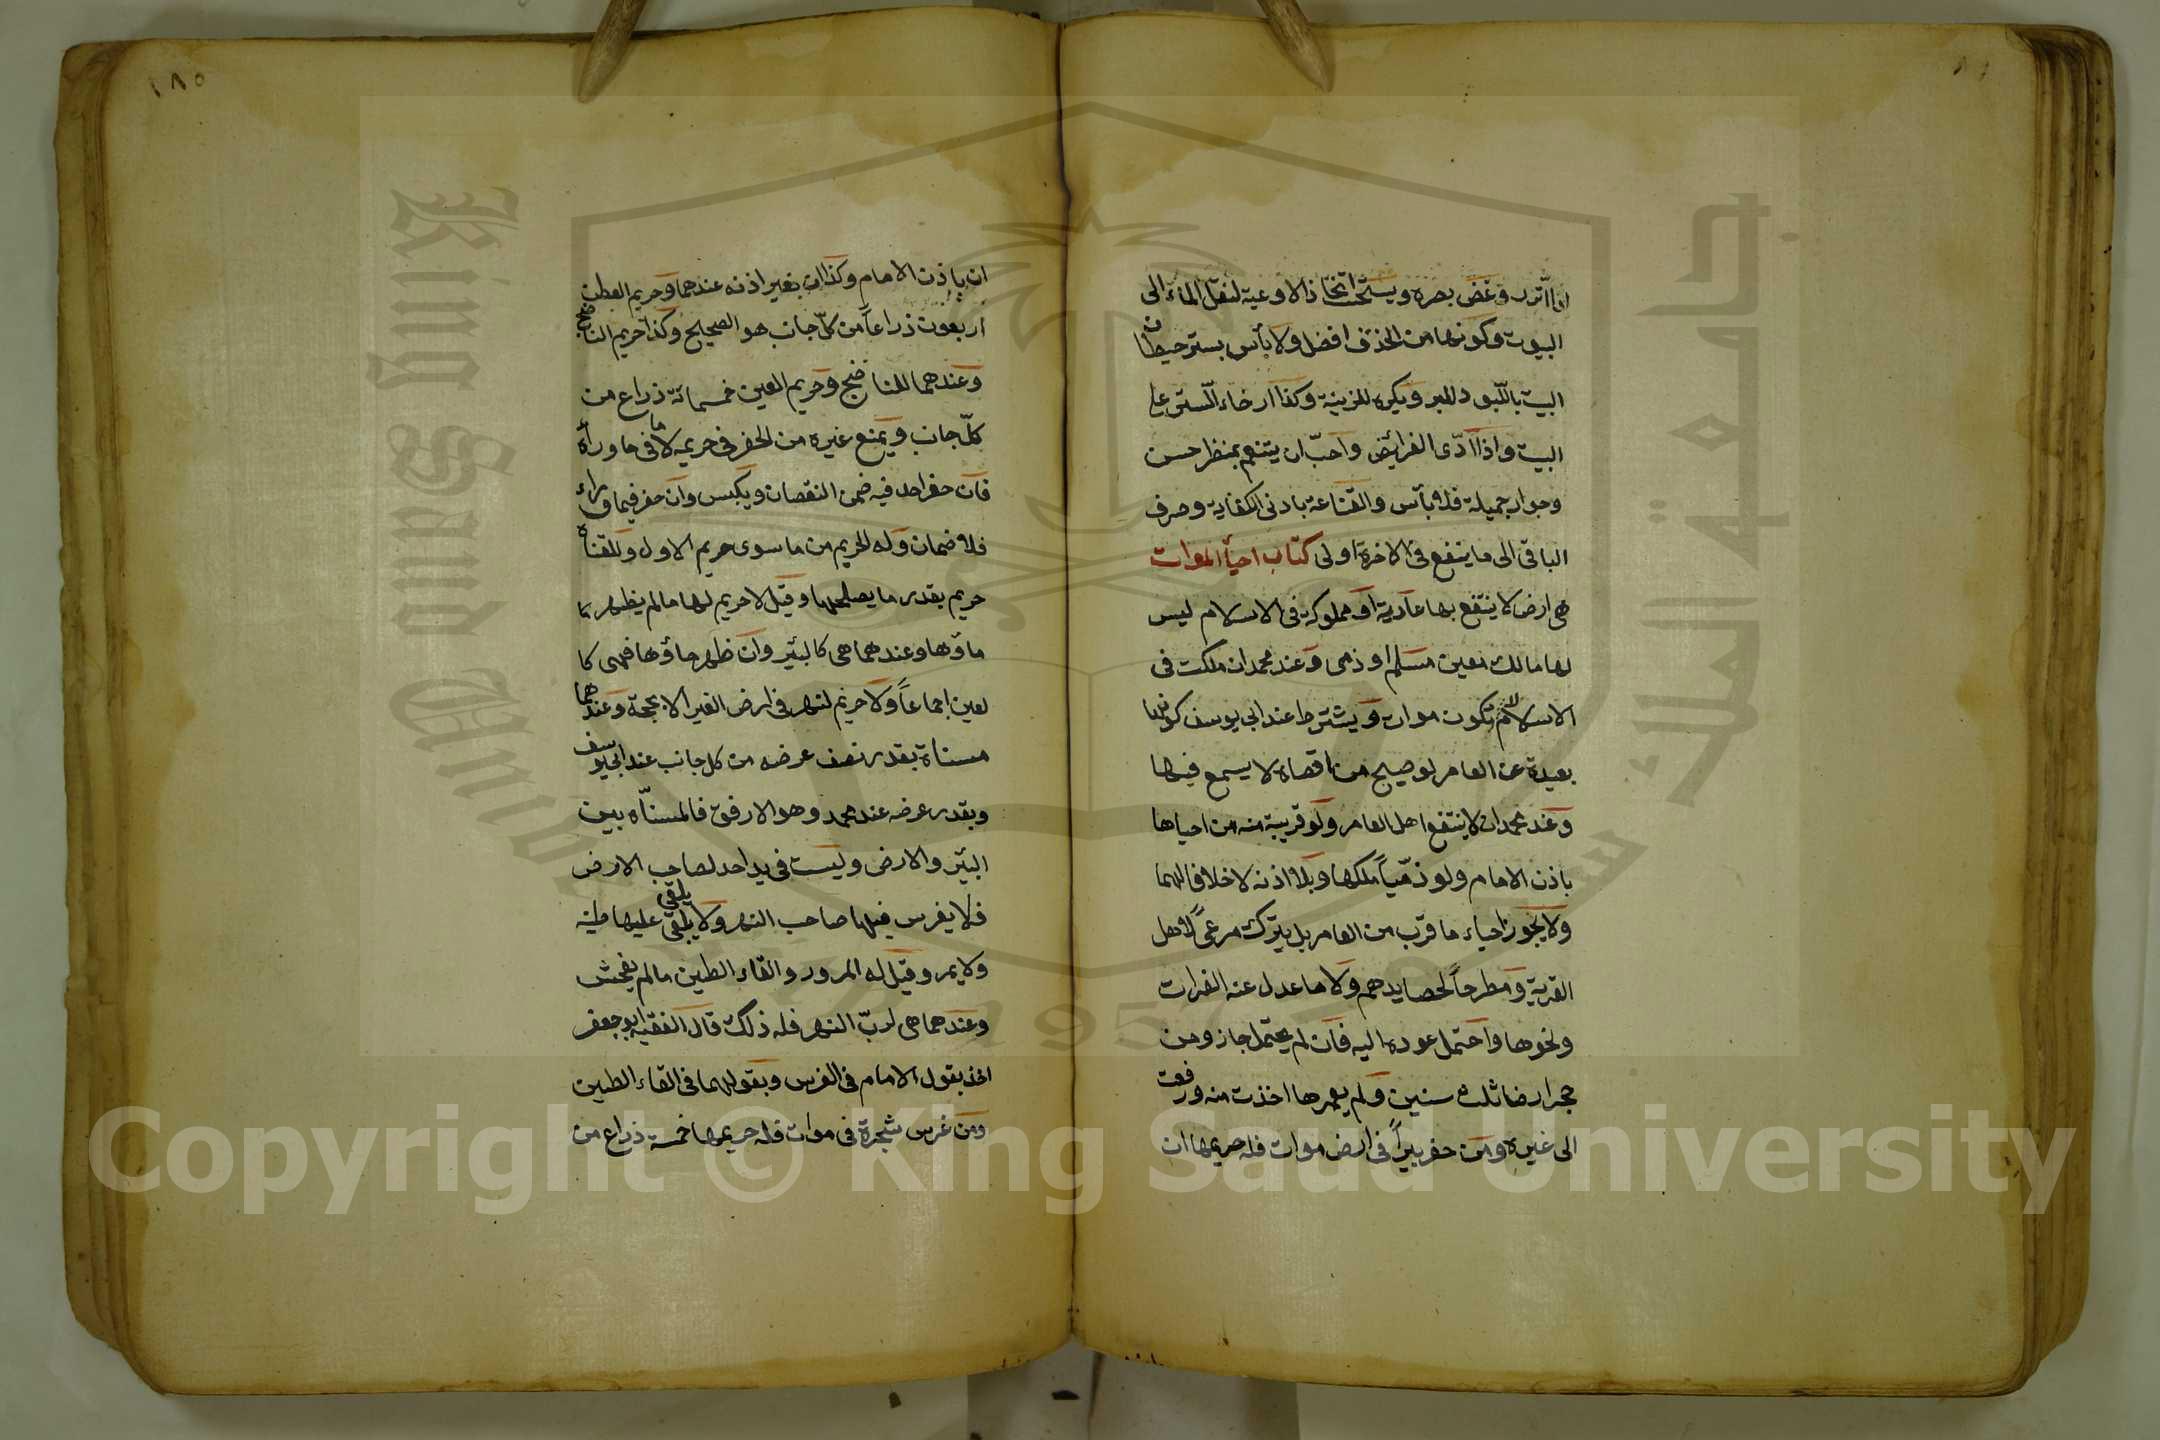 اذا اتزر وغض بصره ويستحب اتخاذ الاوعية لنقل الماء الى
البيوت وكونها من الخذف افضل ولا بأس بستر حيطان
البيت باللبود للبرد ويكره للزينة وكذا ارخاء الستر على
البيت واذا ادّى الفرائض واحبّ ان يتنعم بمنظر حسن
وجوار جميلة فلا بأس والقناعة بادنى الكفاية وصرف
الباقى الى ما ينفع فى الاخرة اولى كتاب احياء الموات
هى ارض لا ينتفع بها عادية او مملوكة فى الاسلام ليس
لها مالك معين مسلم او ذمى وعند محمد ان ملكت فى
الاسلام لا تكون موات ويشترط عند ابى يوسف كونها
بعيدة عن العامر لو صيح من اقصاه لا يسمع فيها
وعند محمد ان لا ينتفع اهل العامر ولو قريبة منه من احياها
باذن الامام ولو ذمّيّاً ملكها وبلا اذنه لا خلافا لهما
ولا يجوز احياء ما قرب من العامر بل يترك مرعىً لاهل
القرية ومطرحاً لحصايدهم ولا ما عدل عنه الفرات
ونحوها واحتمل عوده اليه فان لم يحتمل جاز ومن
حجر ارضا ثلث سنين ولم يعمرها اخذت منه ودفعت
الى غيره ومن حفر بيراً فى ارض موات فله حريمها ان
١٨٥
ان باذن الامام وكذا ان بغير اذنه عندهما وحريم العطن
اربعون ذراعاً من كلّ جانب هو الصحيح وكذا حريم الناضح
وعندهما للناضح وحريم العين خمسمائة ذراع من
كلّ جانب ويمنع غيره من الحفر فى حريمه لا فى ما وراءه
فان حفر احد فيه ضمن النقصان ويكبس وان حفر فيما وراء
فلا ضمان وله الحريم من ما سوى حريم الاول وللقناة
حريم بقدر ما يصلحها وقيل لا حريم لها ما لم يظهر
ماؤها وعندهما هى كالبئر وان ظهر ماؤها فهى كا
لعين اجماعاً ولا حريم لنهر فى ارض الغير الا بحجة وعندهما
مسناة بقدر نصف عرضه من كل جانب عند ابى يوسف
وبقدر عرضه عند محمد وهو الارفق فالمسنّاه بين
البئر والارض وليست فى يد احد لصاحب الارض
فلا يغرس فيها صاحب النهر ولا يلقى عليها طينه
ولا يمر وقيل له المرور والقاء الطين ما لم يفحش
وعندهما هى لربّ النهر فله ذلك قال الفقيه ابو جعفر
اخذ بقول الامام فى الغرس وبقولهما فى القاء الطين
ومن غرس شجرة فى موات فله حريمها خمسة ذراع من
King Saud University
جامعة الملك سعود
1957
Copyright © King Saud University